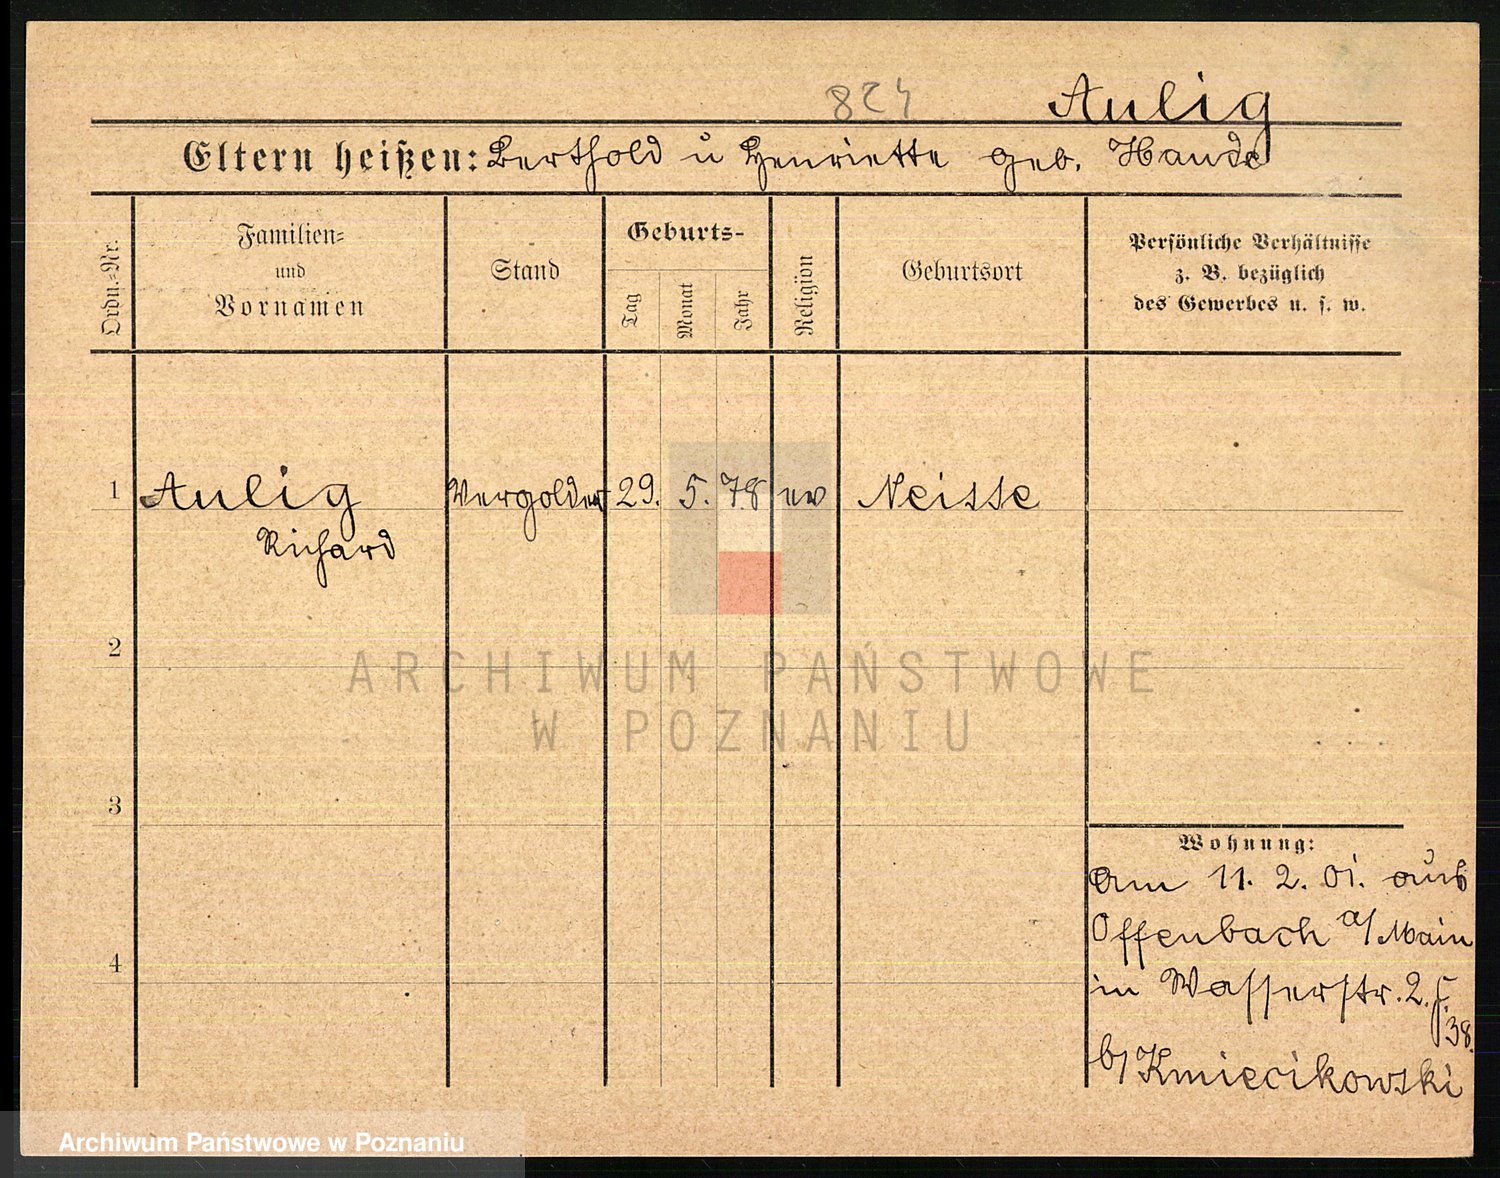 824 Aulig
Eltern heißen: Berthold u Henriette geb. Hande
Ordn.-Nr.
Familien-
und
Vornamen
Stand
Geburts-
Tag
Monat
Jahr
Religion
Geburtsort
Persönliche Verhältnisse
z. B. bezüglich
des Gewerbes u. s. w.
1 Aulig Vergolder 29. 5. 78 ev Neisse
Richard
2
ARCHIWUM PAŃSTWOWE
W POZNANIU
3
Wohnung:
am 11. 2. 01. aus
Offenbach a/Main
4
in Wasserstr. 2.
38.
b/ Kmiecikowski
Archiwum Państwowe w Poznaniu